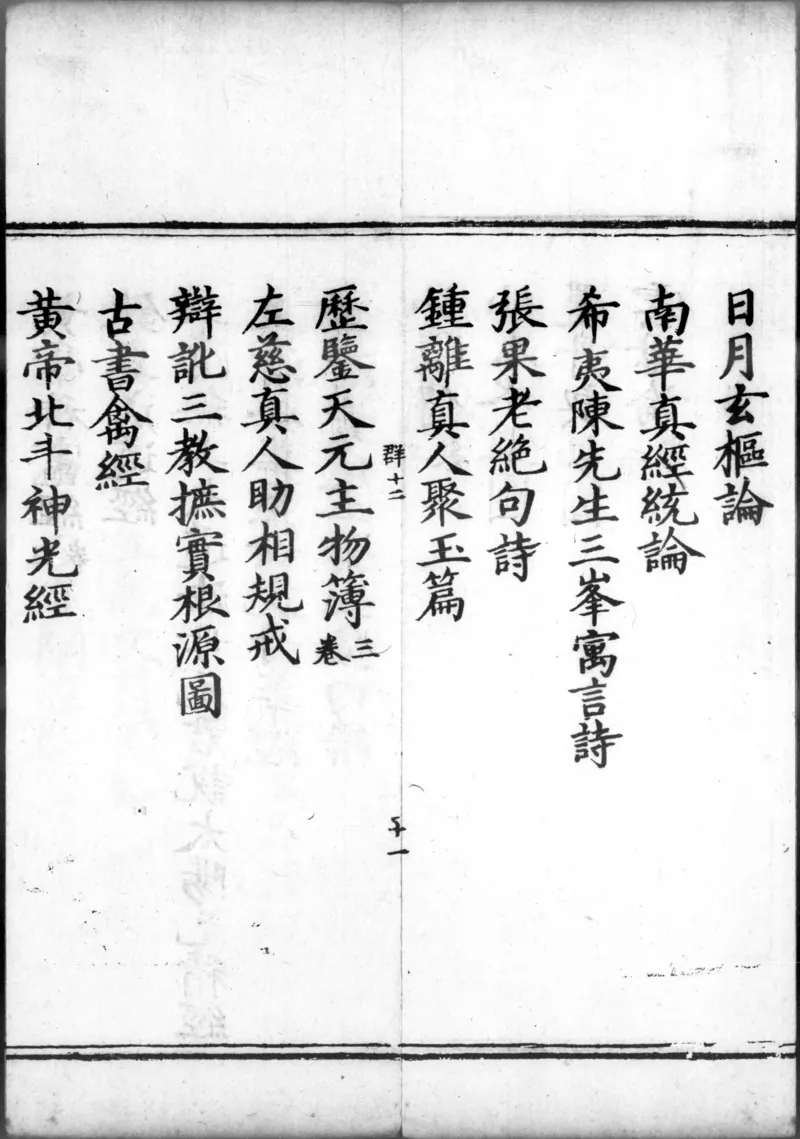 日月玄樞論
南華真經統論
希夷陳先生三峯寓言詩
張果老絶句詩
鍾離真人聚玉篇
群十二
十一
歷鑒天元主物簿三卷
左慈真人助相規戒
辯訛三教摭實根源圖
古書禽經
黃帝北斗神光經